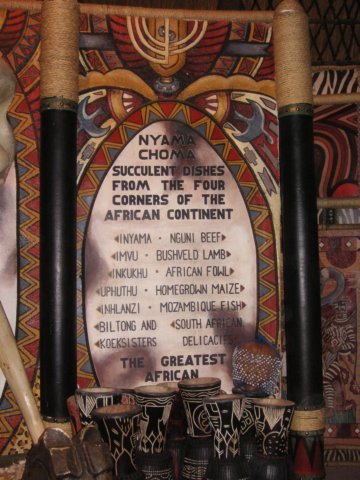 NYAMA
CHOMA
SUCCULENT DISHES
FROM THE FOUR
CORNERS OF THE
AFRICAN CONTINENT
INYAMA · NGUNI BEEF
IMVU · BUSHVELD LAMB
INKUKHU · AFRICAN FOWL
UPHUTHU · HOMEGROWN MAIZE
INHLANZI · MOZAMBIQUE FISH
BILTONG AND SOUTH AFRICAN
KOEKSISTERS DELICACIES
THE GREATEST
AFRICAN